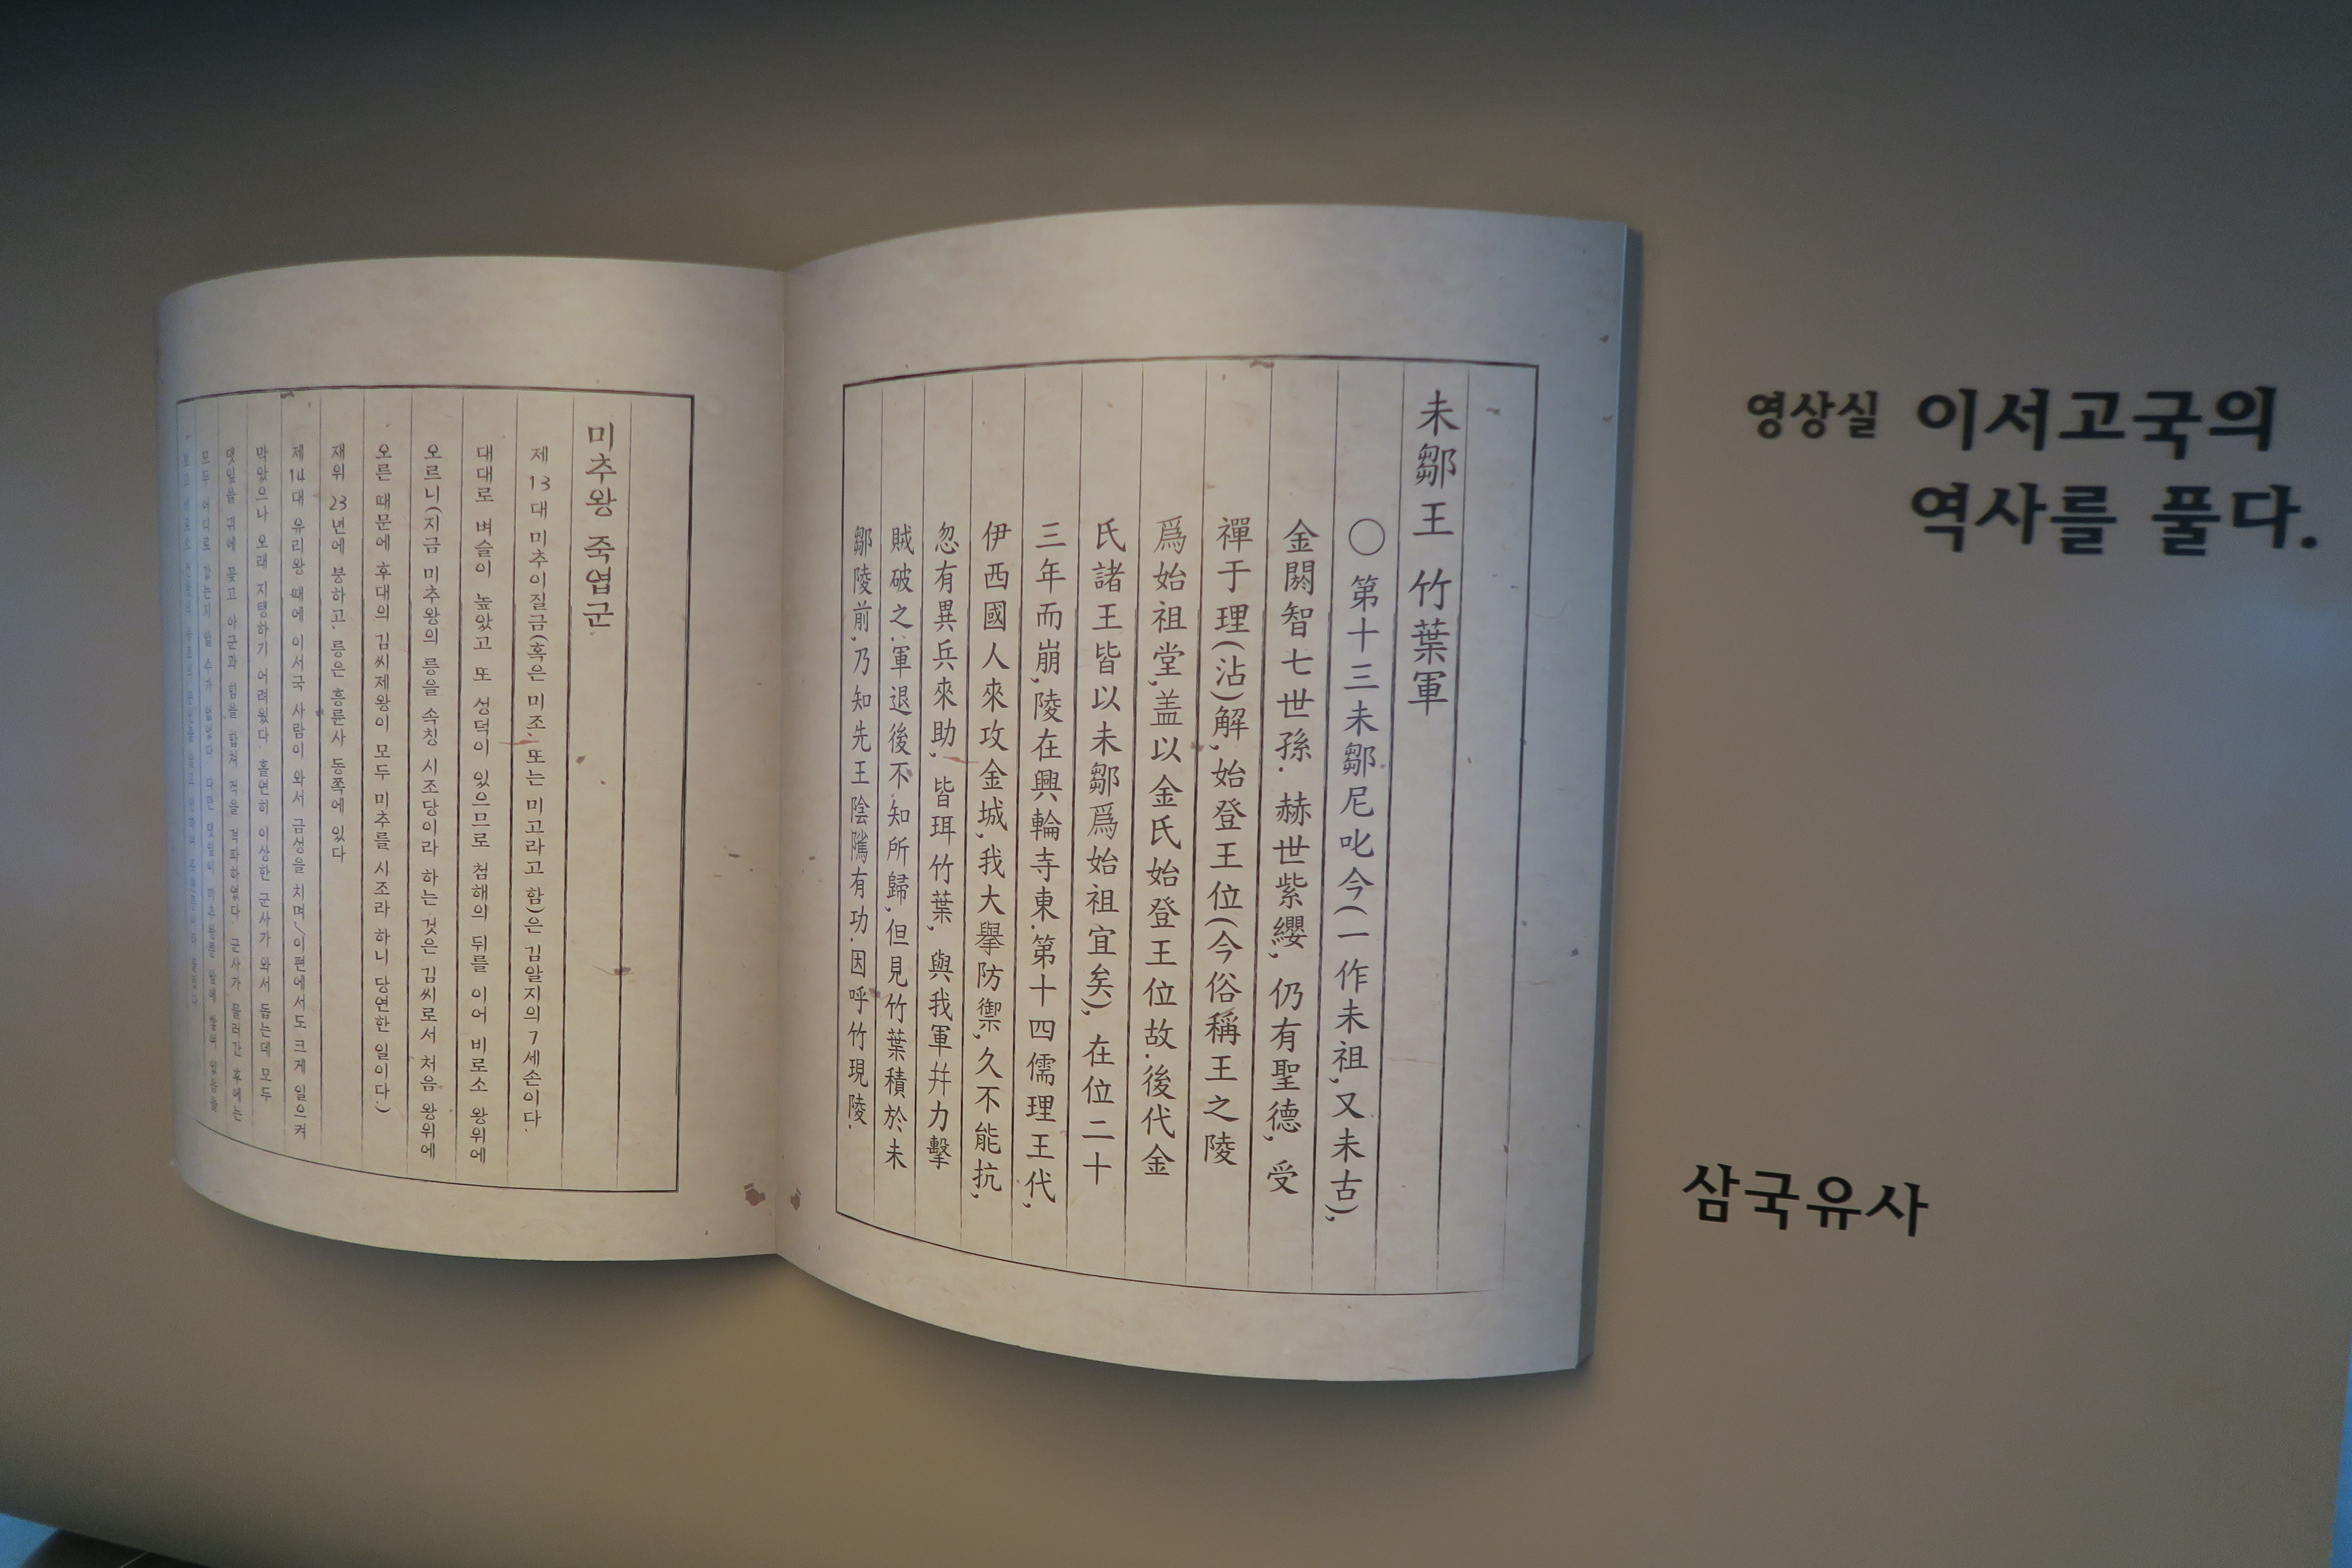 未鄒王 竹葉軍
○ 第十三未鄒尼叱今(一作未祖,又未古),
金閼智七世孫. 赫世紫纓, 仍有聖德, 受
禪于理(沾)解, 始登王位(今俗稱王之陵
爲始祖堂,盖以金氏始登王位故.後代金
氏諸王皆以未鄒爲始祖宜矣), 在位二十
三年而崩,陵在興輪寺東.第十四儒理王代,
伊西國人來攻金城,我大擧防禦,久不能抗,
忽有異兵來助, 皆珥竹葉, 與我軍幷力擊
賊破之.軍退後不知所歸,但見竹葉積於未
鄒陵前,乃知先王陰隲有功.因呼竹現陵.
미추왕 죽엽군
제 13대 미추이질금(혹은 미조, 또는 미고라고 함)은 김알지의 7세손이다.
대대로 벼슬이 높았고 또 성덕이 있으므로 첨해의 뒤를 이어 비로소 왕위에
오르니(지금 미추왕의 릉을 속칭 시조당이라 하는 것은 김씨로서 처음 왕위에
오른 때문에 후대의 김씨제왕이 모두 미추를 시조라 하니 당연한 일이다.)
재위 23년에 붕하고, 릉은 흥륜사 동쪽에 있다
제14대 유리왕 때에 이서국 사람이 와서 금성을 치며,이편에서도 크게 일으켜
막았으나 오래 지탱하기 어려웠다. 홀연히 이상한 군사가 와서 돕는데 모두
댓잎을 귀에 꽂고 아군과 힘을 합쳐 적을 격파하였다. 군사가 물러간 후에는
모두 어디로 갔는지 알 수가 없었다. 다만 댓잎이 미추왕릉 앞에 쌓여 있음을
영상실 이서고국의
역사를 풀다.
삼국유사